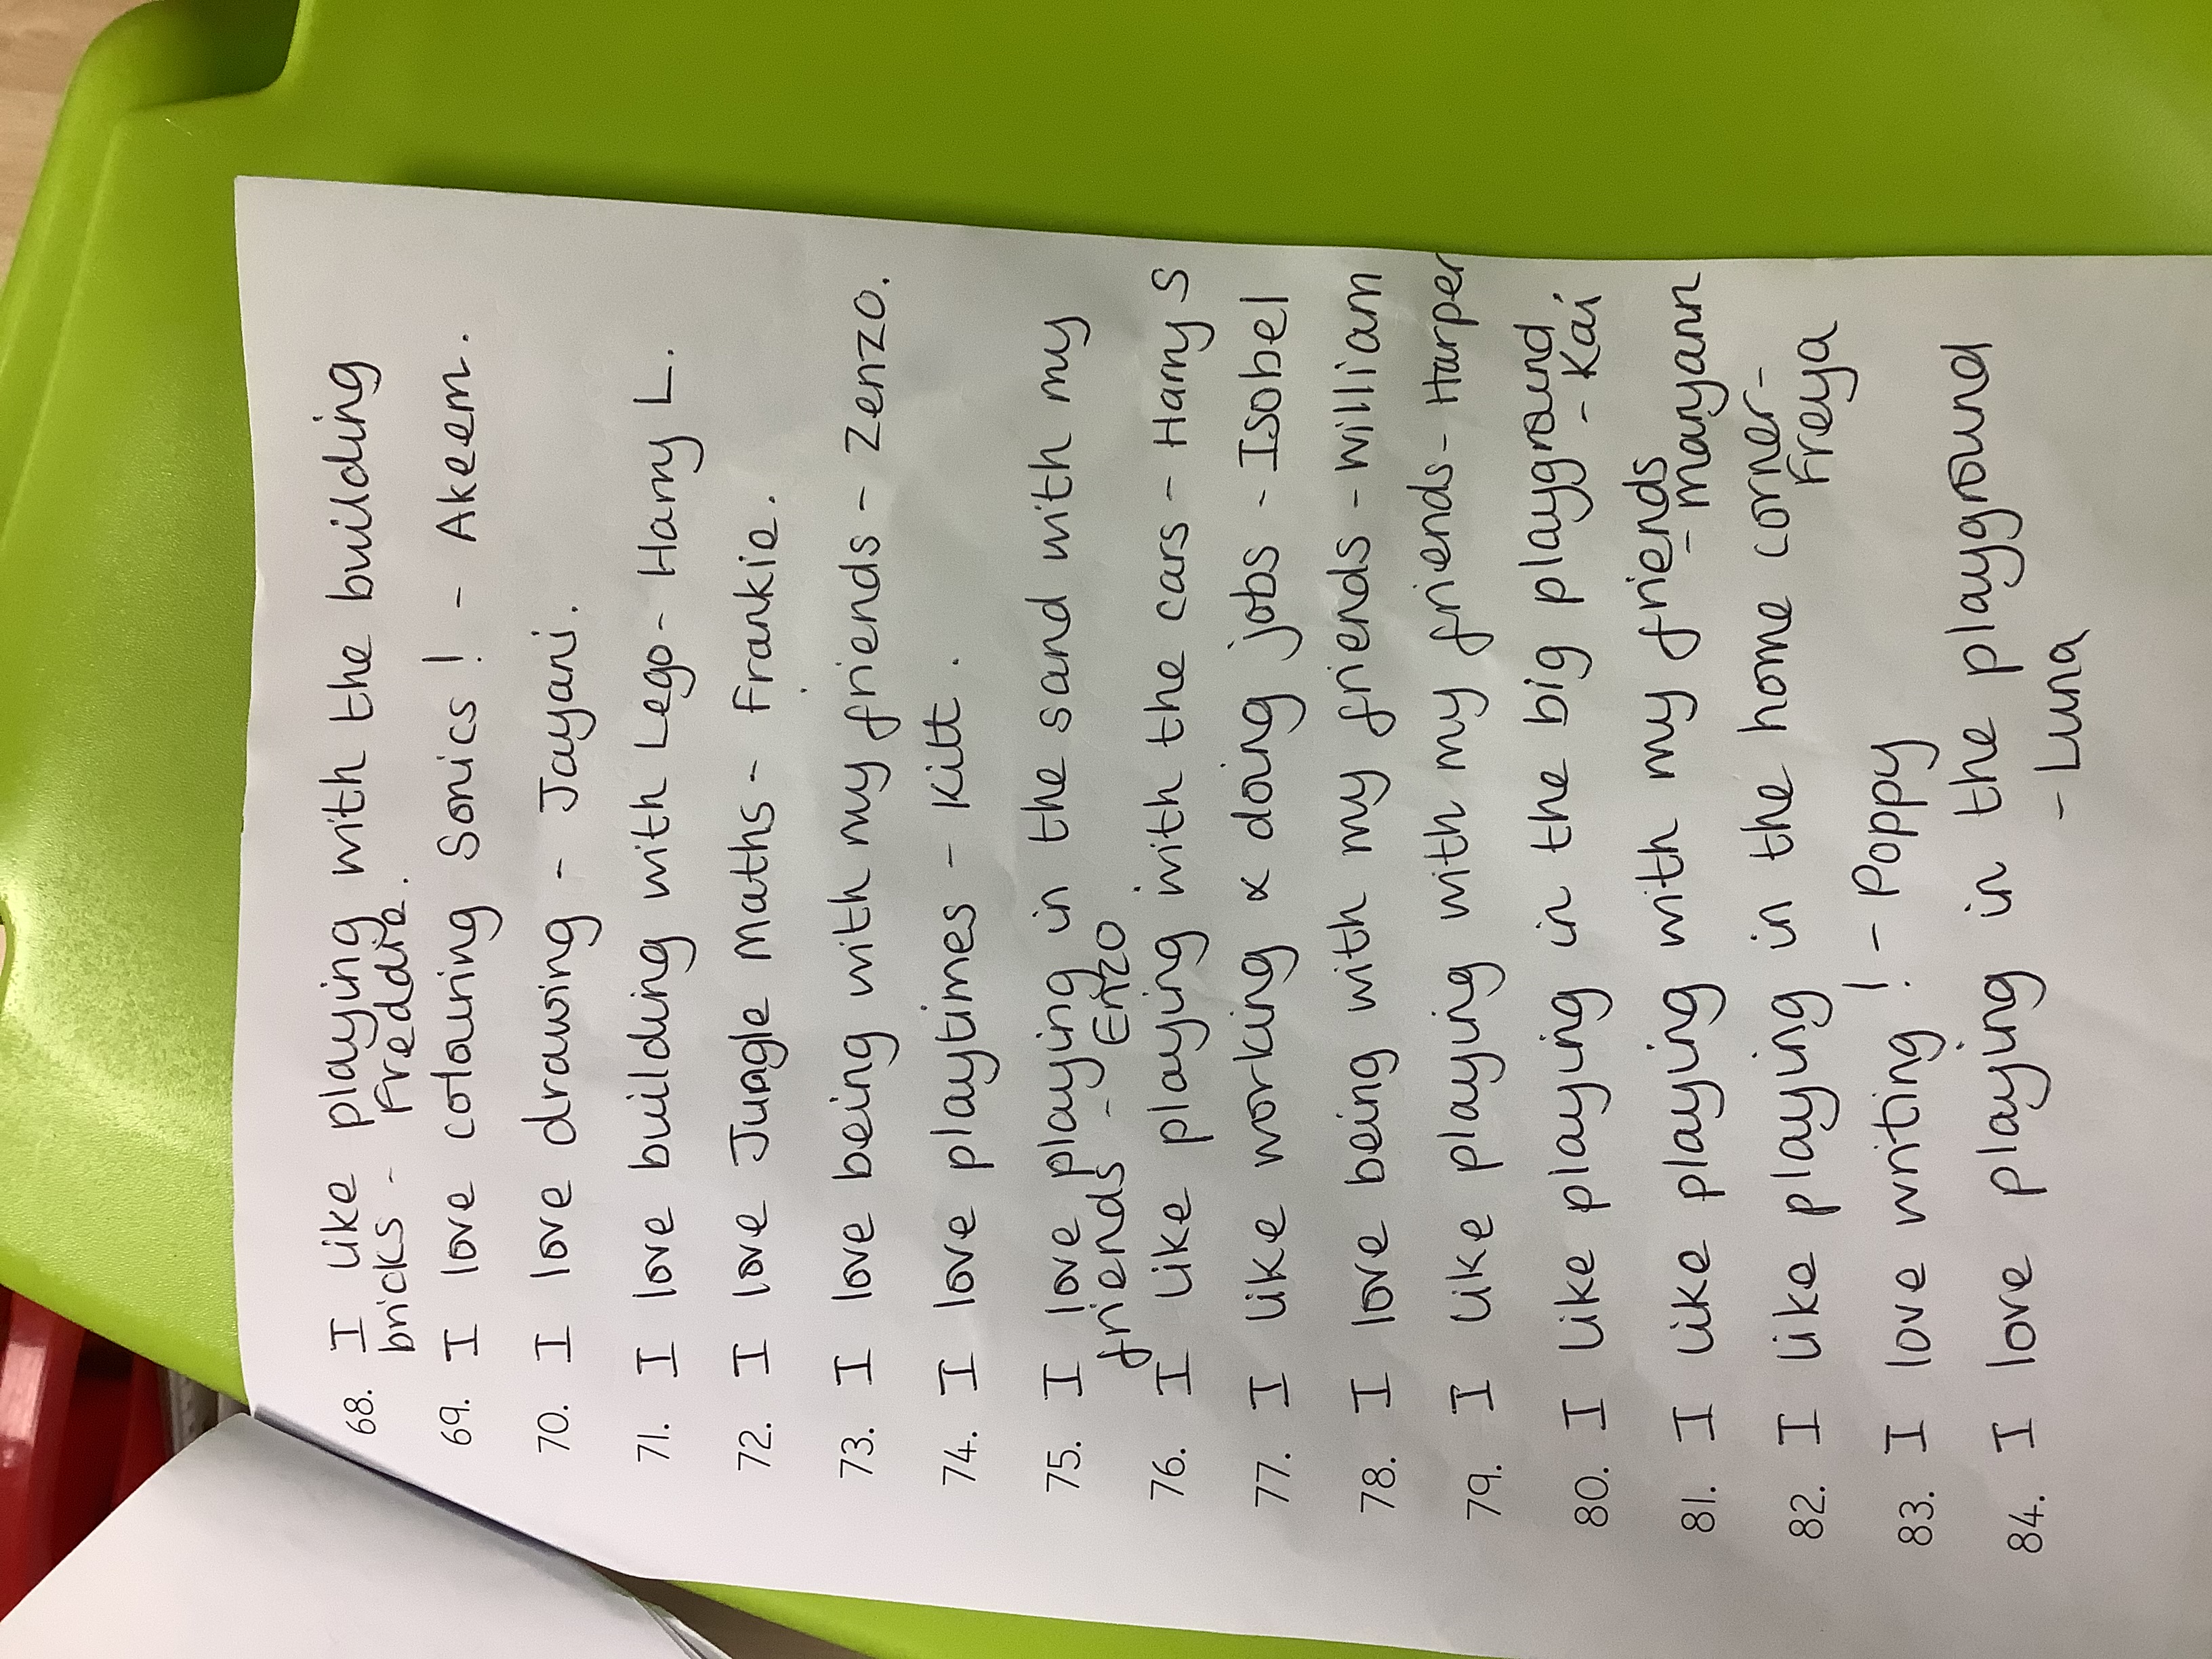 68. I like playing with the building
bricks - Freddie.
69. I love colouring Sonics! - Akeem.
70. I love drawing - Jayani.
71. I love building with Lego - Harry L.
72. I love Jungle Maths - Frankie.
73. I love being with my friends - Zenzo.
74. I love playtimes - Kitt.
75. I love playing in the sand with my
friends - Enzo
76. I like playing with the cars - Harry S
77. I like working & doing jobs - Isobel
78. I love being with my friends - William
79. I like playing with my friends - Harper
80. I like playing in the big playground
- Kai
81. I like playing with my friends
- Maryann
82. I like playing in the home corner -
Freya
83. I love writing! - Poppy
84. I love playing in the playground
- Luna